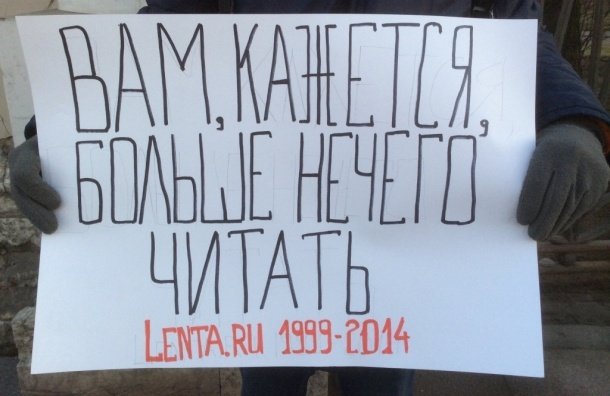 ВАМ, КАЖЕТСЯ,
БОЛЬШЕ НЕЧЕГО
ЧИТАТЬ
LENTA.RU 1999-2014